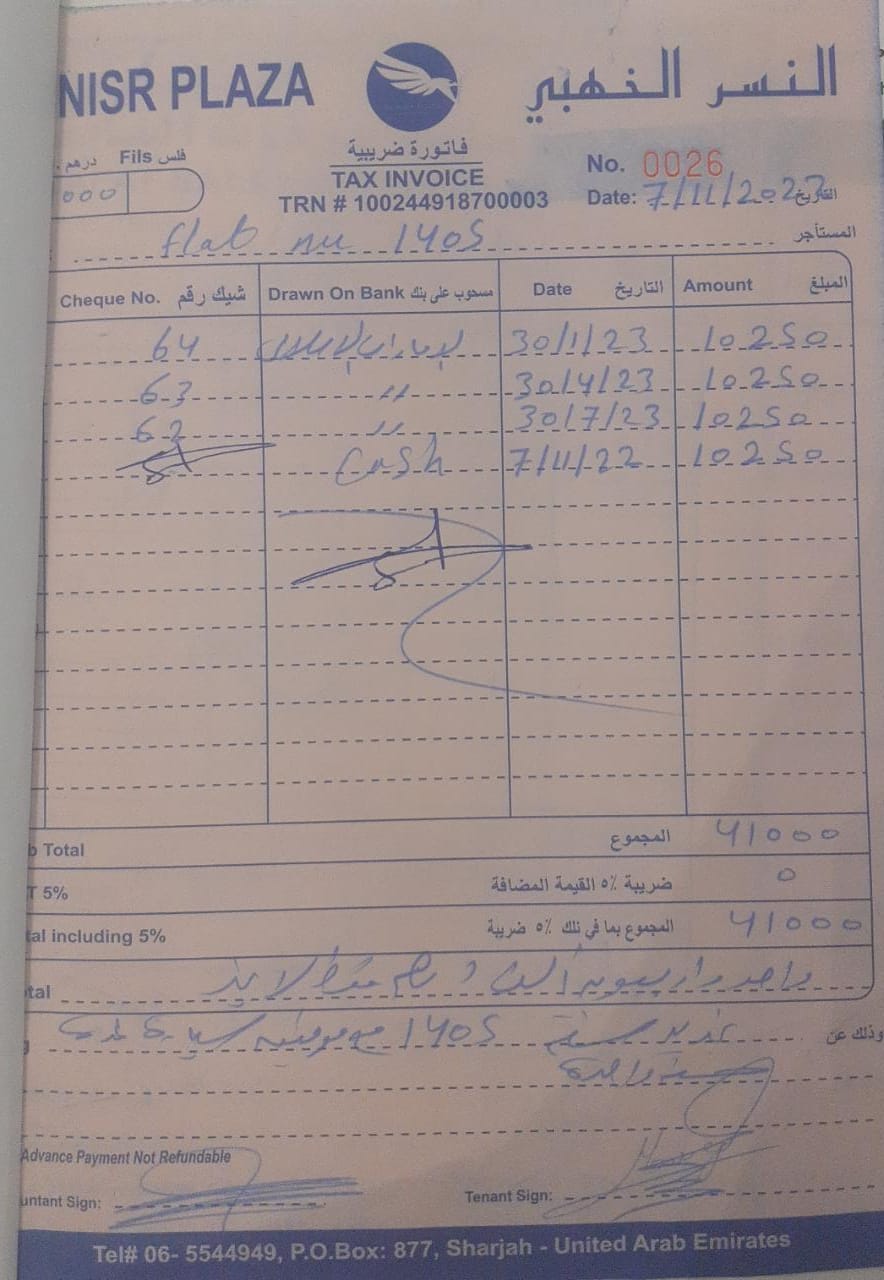 NISR PLAZA
النسر الذهبي
درهم Fils فلس
000
فاتورة ضريبية
TAX INVOICE
TRN # 100244918700003
No. 0026
Date: 7/11/2022 التاريخ
flat no 1405 المستأجر
Cheque No. شيك رقم Drawn On Bank مسحوب على بنك Date التاريخ Amount المبلغ
64 30/1/23 10250
63 〃 30/4/23 10250
62 〃 30/7/23 10250
Cash 7/11/22 10250
b Total المجموع 41000
T 5% ضريبة ٥% القيمة المضافة 0
tal including 5% المجموع بما في ذلك ٥% ضريبة 41000
tal واحد واربعون ألف درهم فقط لا غير
وذلك عن 1405
Advance Payment Not Refundable
untant Sign: Tenant Sign:
Tel# 06- 5544949, P.O.Box: 877, Sharjah - United Arab Emirates